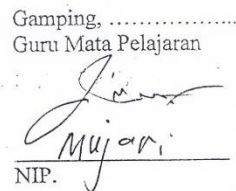 Gamping, ....................
Guru Mata Pelajaran
Mujari
NIP.